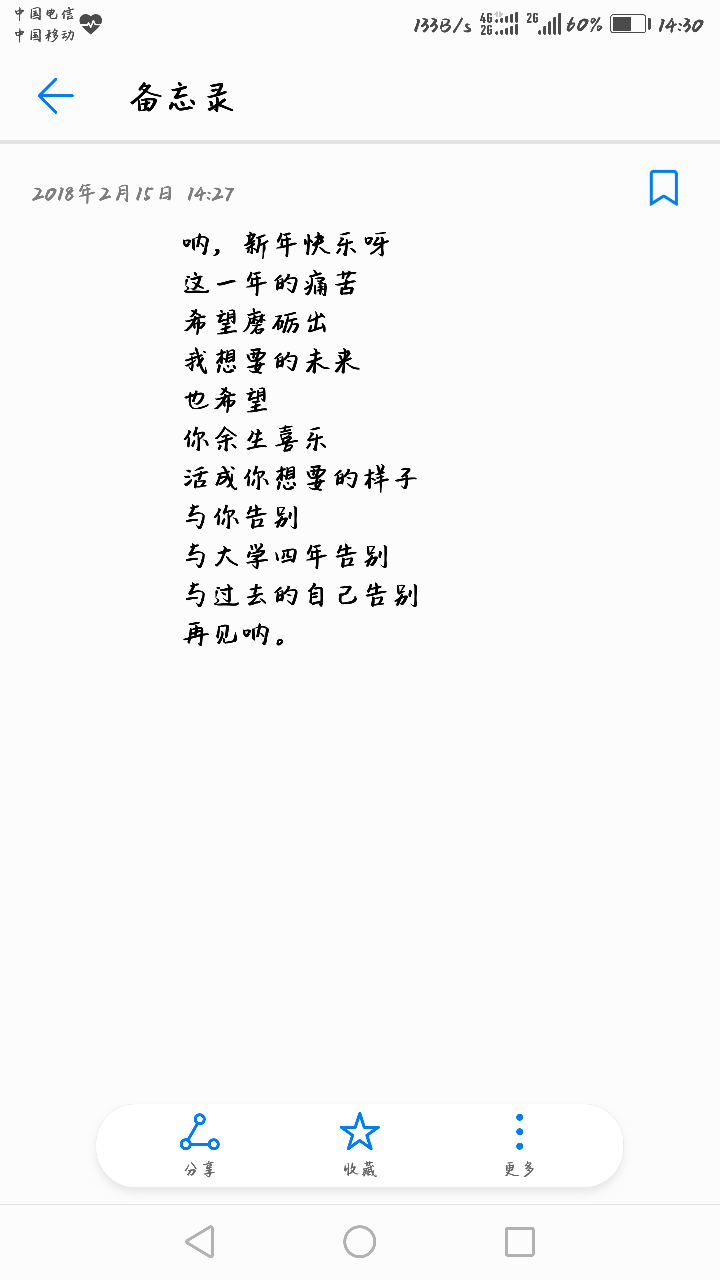 中国电信
中国移动
133B/s 4G 2G 2G 60% 14:30
备忘录
2018年2月15日 14:27
呐，新年快乐呀
这一年的痛苦
希望磨砺出
我想要的未来
也希望
你余生喜乐
活成你想要的样子
与你告别
与大学四年告别
与过去的自己告别
再见呐。
分享 收藏 更多